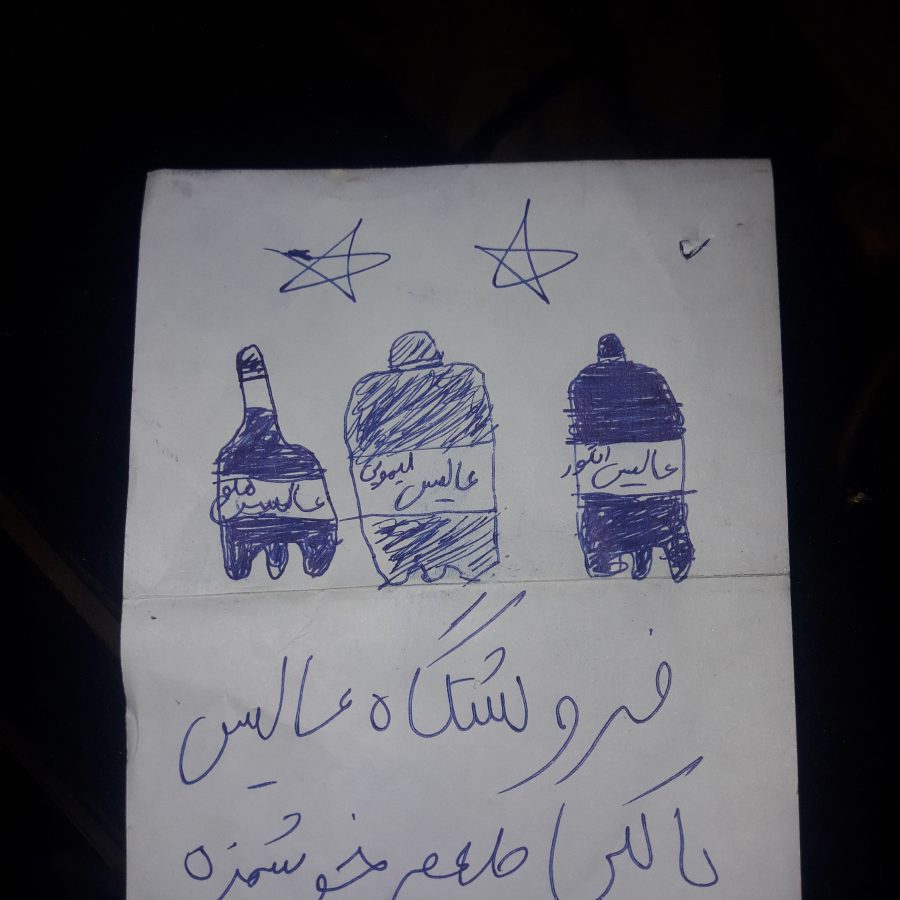 عالیس انگور
عالیس لیموی
عالیس هلو
فروشگاه عالیس
باکلی طعم خوشمزه